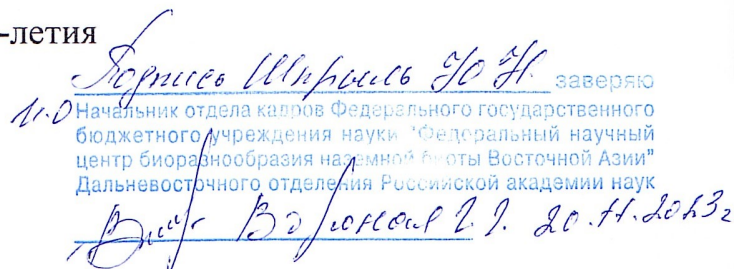 -летия
Подпись Шкрыль Ю.Н. заверяю
И.О Начальник отдела кадров Федерального государственного
бюджетного учреждения науки "Федеральный научный
центр биоразнообразия наземной биоты Восточной Азии"
Дальневосточного отделения Российской академии наук
20.11.2023г